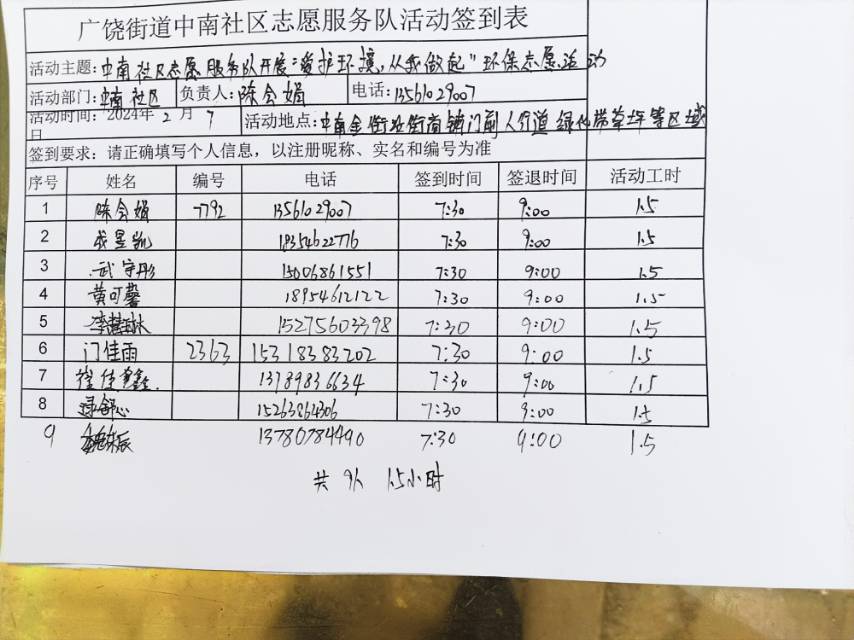 广饶街道中南社区志愿服务队活动签到表
活动主题：中南社区志愿服务队开展"爱护环境，从我做起"环保志愿活动
活动部门：中南社区 负责人：陈会娟 电话：13561029007
活动时间：2024年2月7日 活动地点：中南金街及街商铺门前人行道绿化带草坪等区域
签到要求：请正确填写个人信息，以注册昵称、实名和编号为准
序号 姓名 编号 电话 签到时间 签退时间 活动工时
1 陈会娟 7792 13561029007 7:30 9:00 1.5
2 18354622776 7:30 9:00 1.5
3 武宇彤 15006861551 7:30 9:00 1.5
4 黄可馨 18954612122 7:30 9:00 1.5
5 15275603398 7:30 9:00 1.5
6 门佳雨 2363 15318383202 7:30 9:00 1.5
7 13789836634 7:30 9:00 1.5
8 15263864306 7:30 9:00 1.5
9 13780784490 7:30 9:00 1.5
共9人 1.5小时